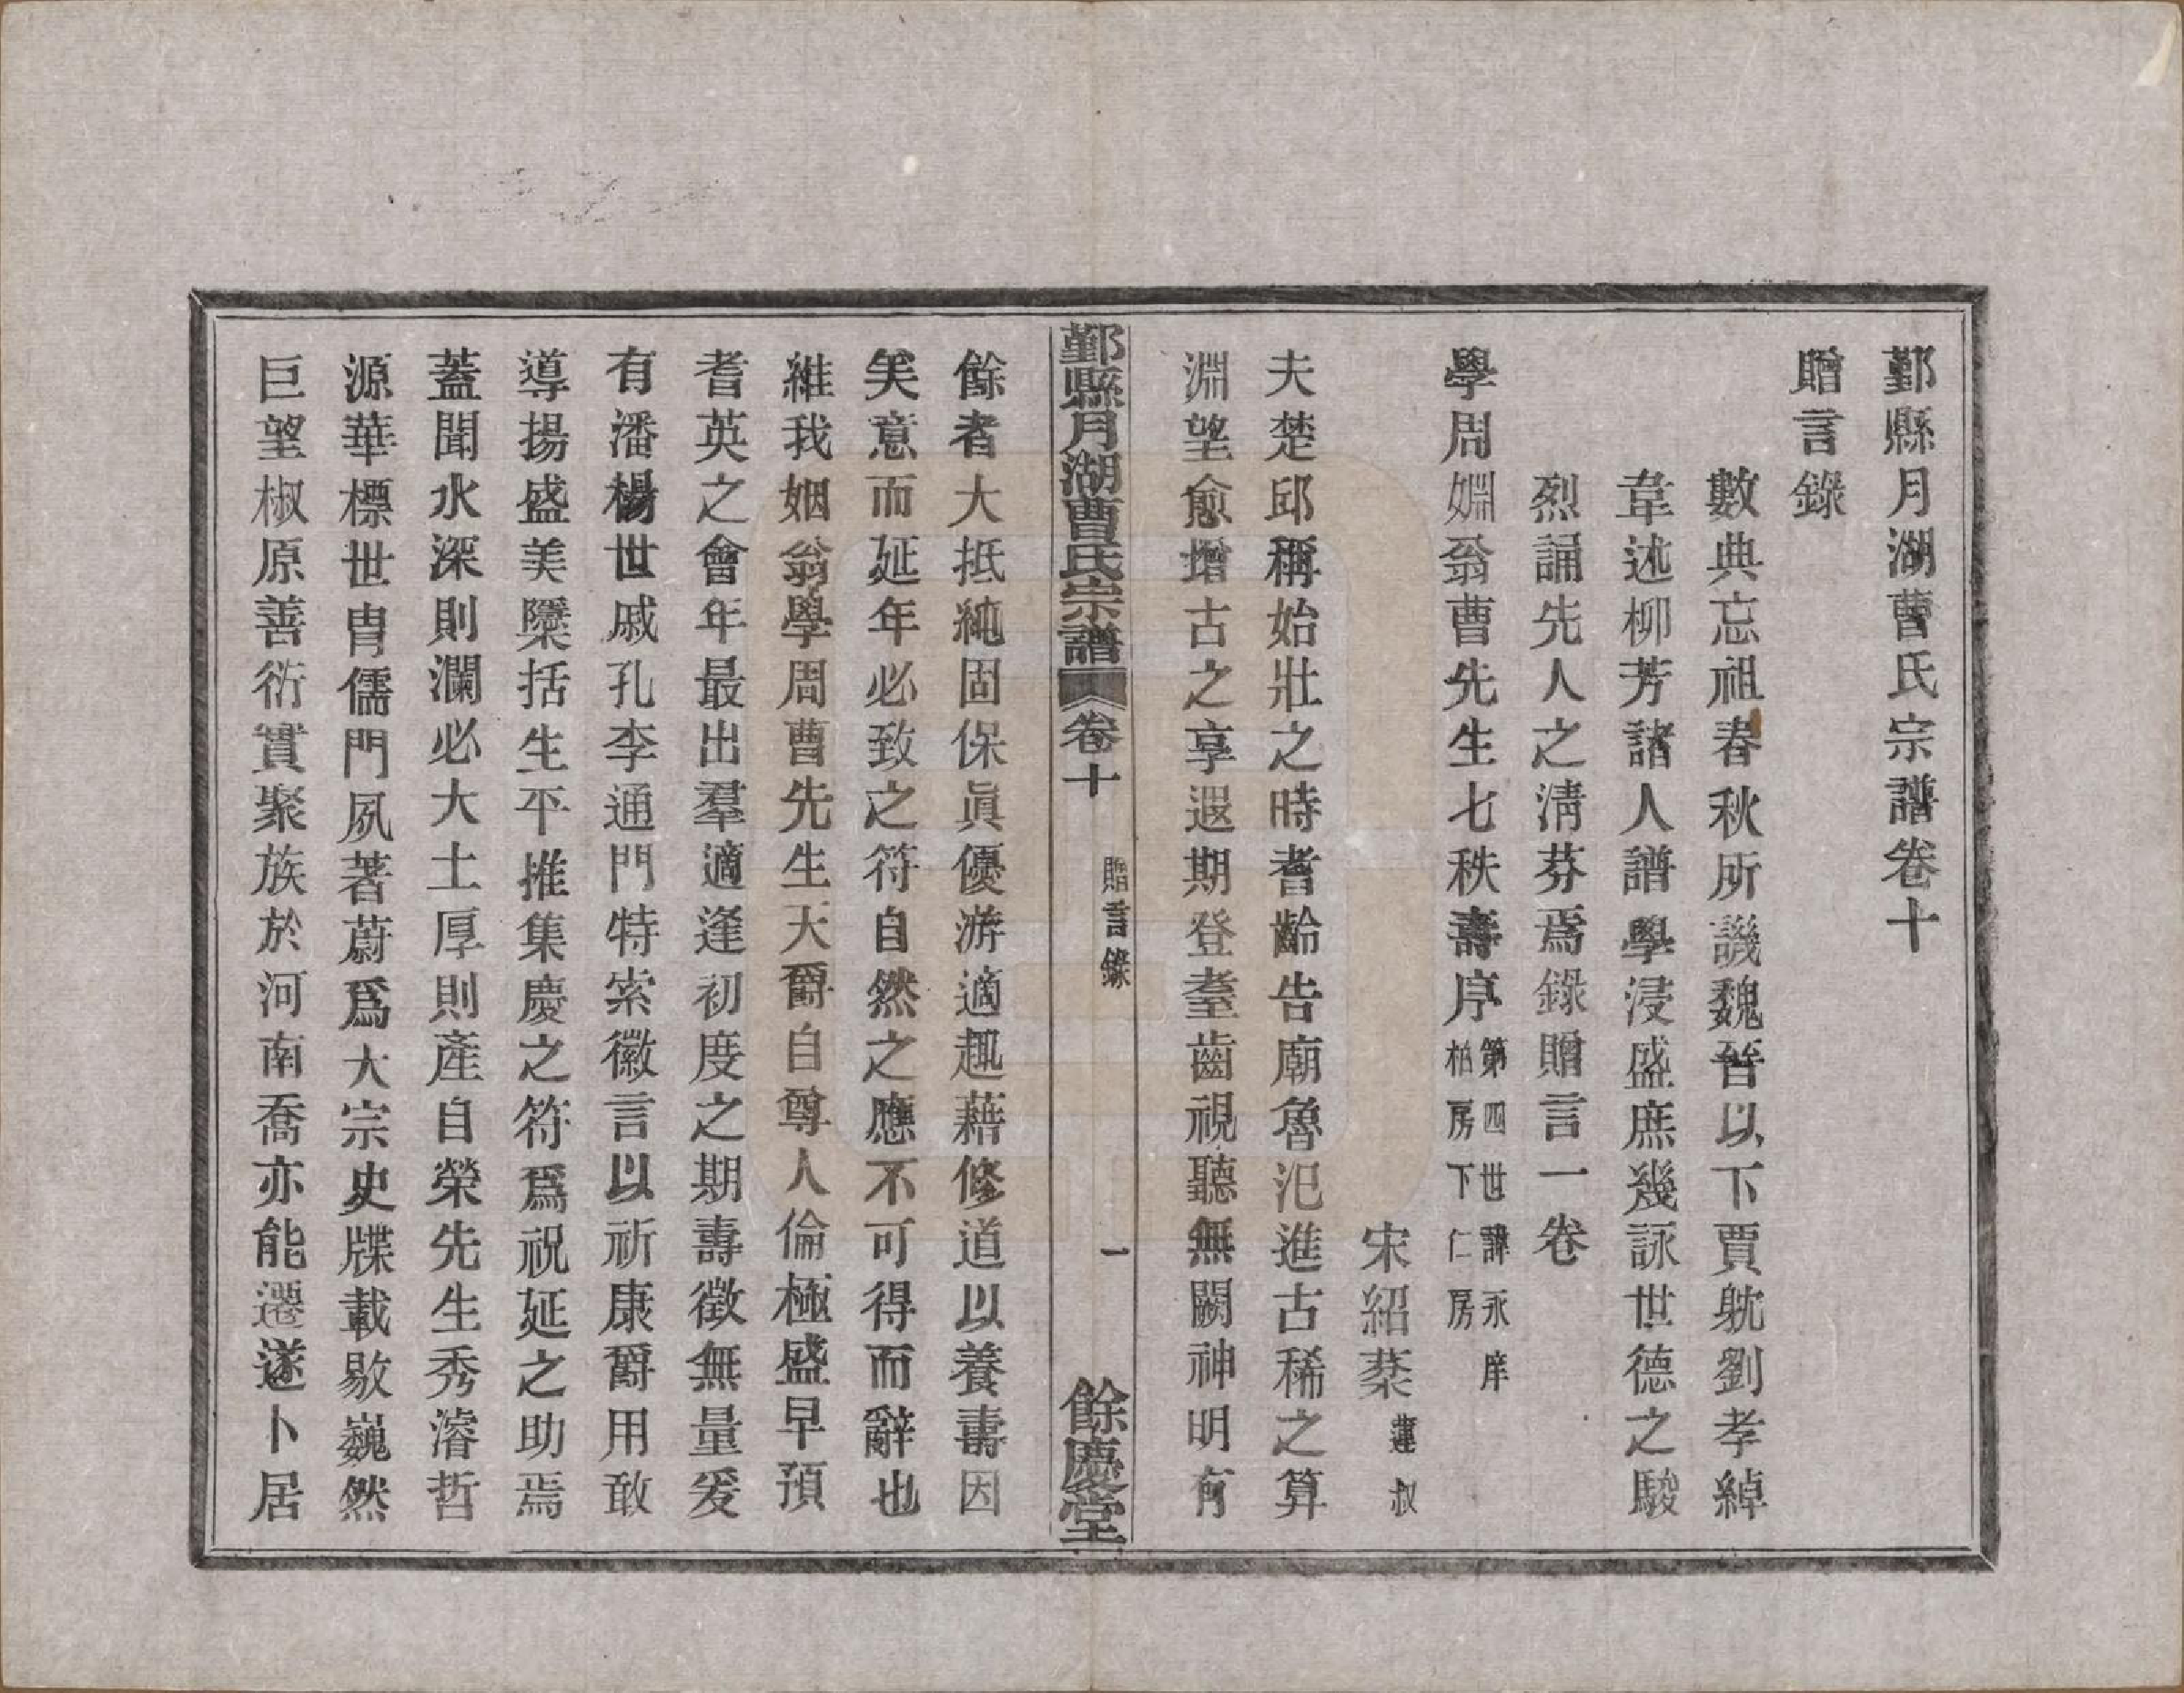 鄞縣月湖曹氏宗譜卷十
贈言錄
數典忘祖春秋所譏魏晉以下賈躭劉孝綽
韋述柳芳諸人譜學浸盛庶幾詠世德之駿
烈誦先人之淸芬焉錄贈言一卷
學周姻翁曹先生七秩壽序第四世諱永庠
柏房下仁房
宋紹棻蓮叔
夫楚邱稱始壯之時耆齡告廟魯汜進古稀之算
淵望愈增古之享遐期登耋齒視聽無闕神明有
鄞縣月湖曹氏宗譜 卷十 贈言錄 一 餘慶堂
餘者大抵純固保眞優游適趣藉修道以養壽因
矣意而延年必致之符自然之應不可得而辭也
維我姻翁學周曹先生天爵自尊人倫極盛早預
耆英之會年最出羣適逢初度之期壽徵無量爰
有潘楊世戚孔李通門特索徽言以祈康爵用敢
導揚盛美檃括生平推集慶之符爲祝延之助焉
蓋聞水深則瀾必大土厚則產自榮先生秀濬哲
源華標世冑儒門夙著蔚爲大宗史牒載歇巍然
巨望椒原善衍實聚族於河南喬亦能遷遂卜居